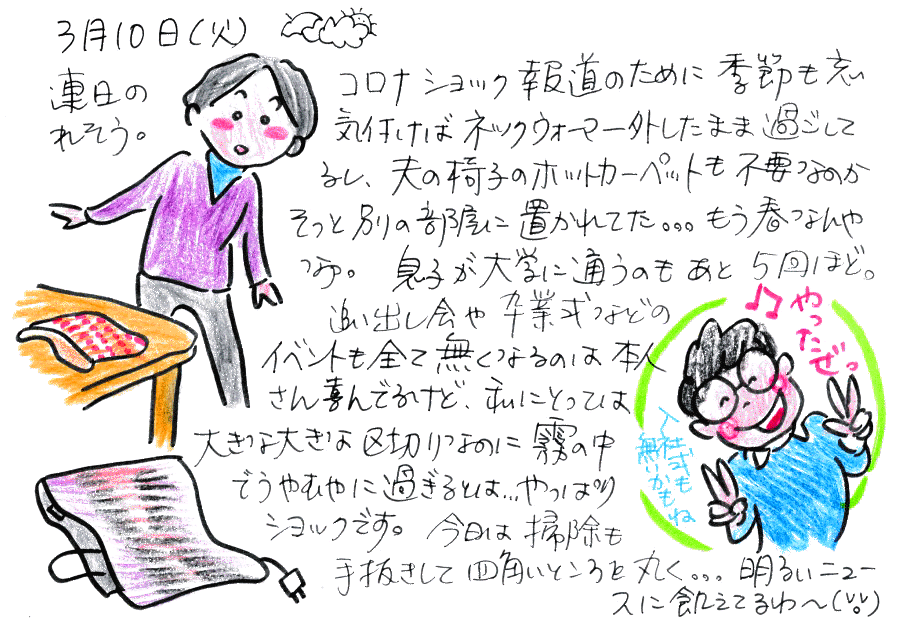 3月10日(火)
連日の
コロナショック報道のために季節も忘
れそう。
気付けばネックウォーマー外したまま過ごして
るし、夫の椅子のホットカーペットも不要なのか
そっと別の部屋に置かれてた...もう春なんや
なァ。息子が大学に通うのもあと5回ほど。
追い出し会や卒業式などの
イベントも全て無くなるのは本人
さん喜んでるけど、私にとっては
大きな大きな区切りなのに霧の中
でうやむやに過ぎるとは...やっぱり
ショックです。今日は掃除も
手抜きして四角いところを丸く...明るいニュー
スに飢えてるわ～
♫やったぜ。
入社式も
無いかもね